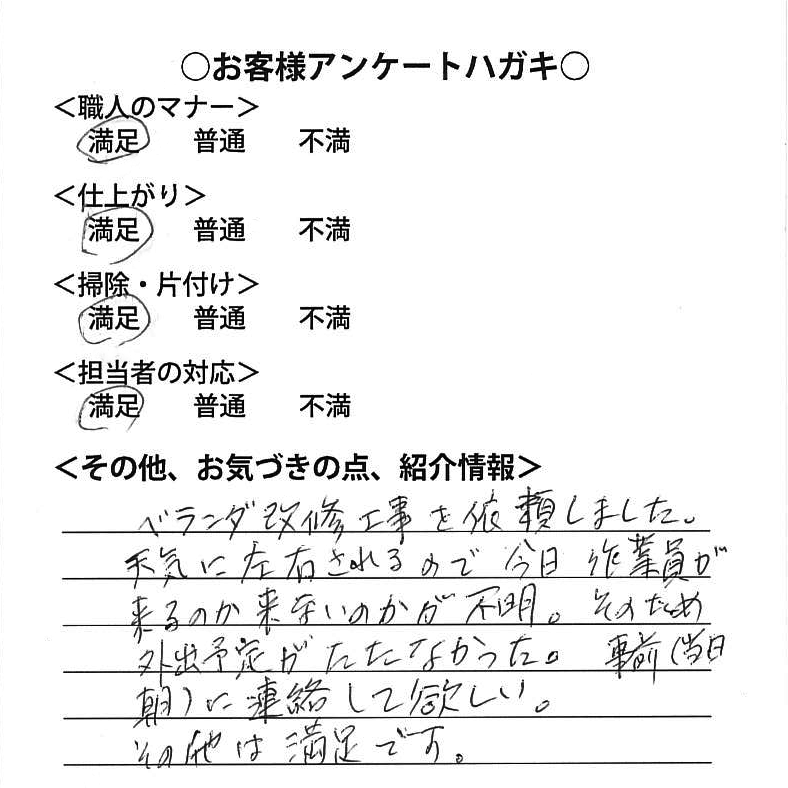 ○お客様アンケートハガキ○
＜職人のマナー＞
満足 普通 不満
＜仕上がり＞
満足 普通 不満
＜掃除・片付け＞
満足 普通 不満
＜担当者の対応＞
満足 普通 不満
＜その他、お気づきの点、紹介情報＞
ベランダ改修工事を依頼しました。
天気に左右されるので今日作業員が
来るのか来ないのかが不明。そのため
外出予定がたたなかった。事前(当日
朝)に連絡して欲しい。
その他は満足です。